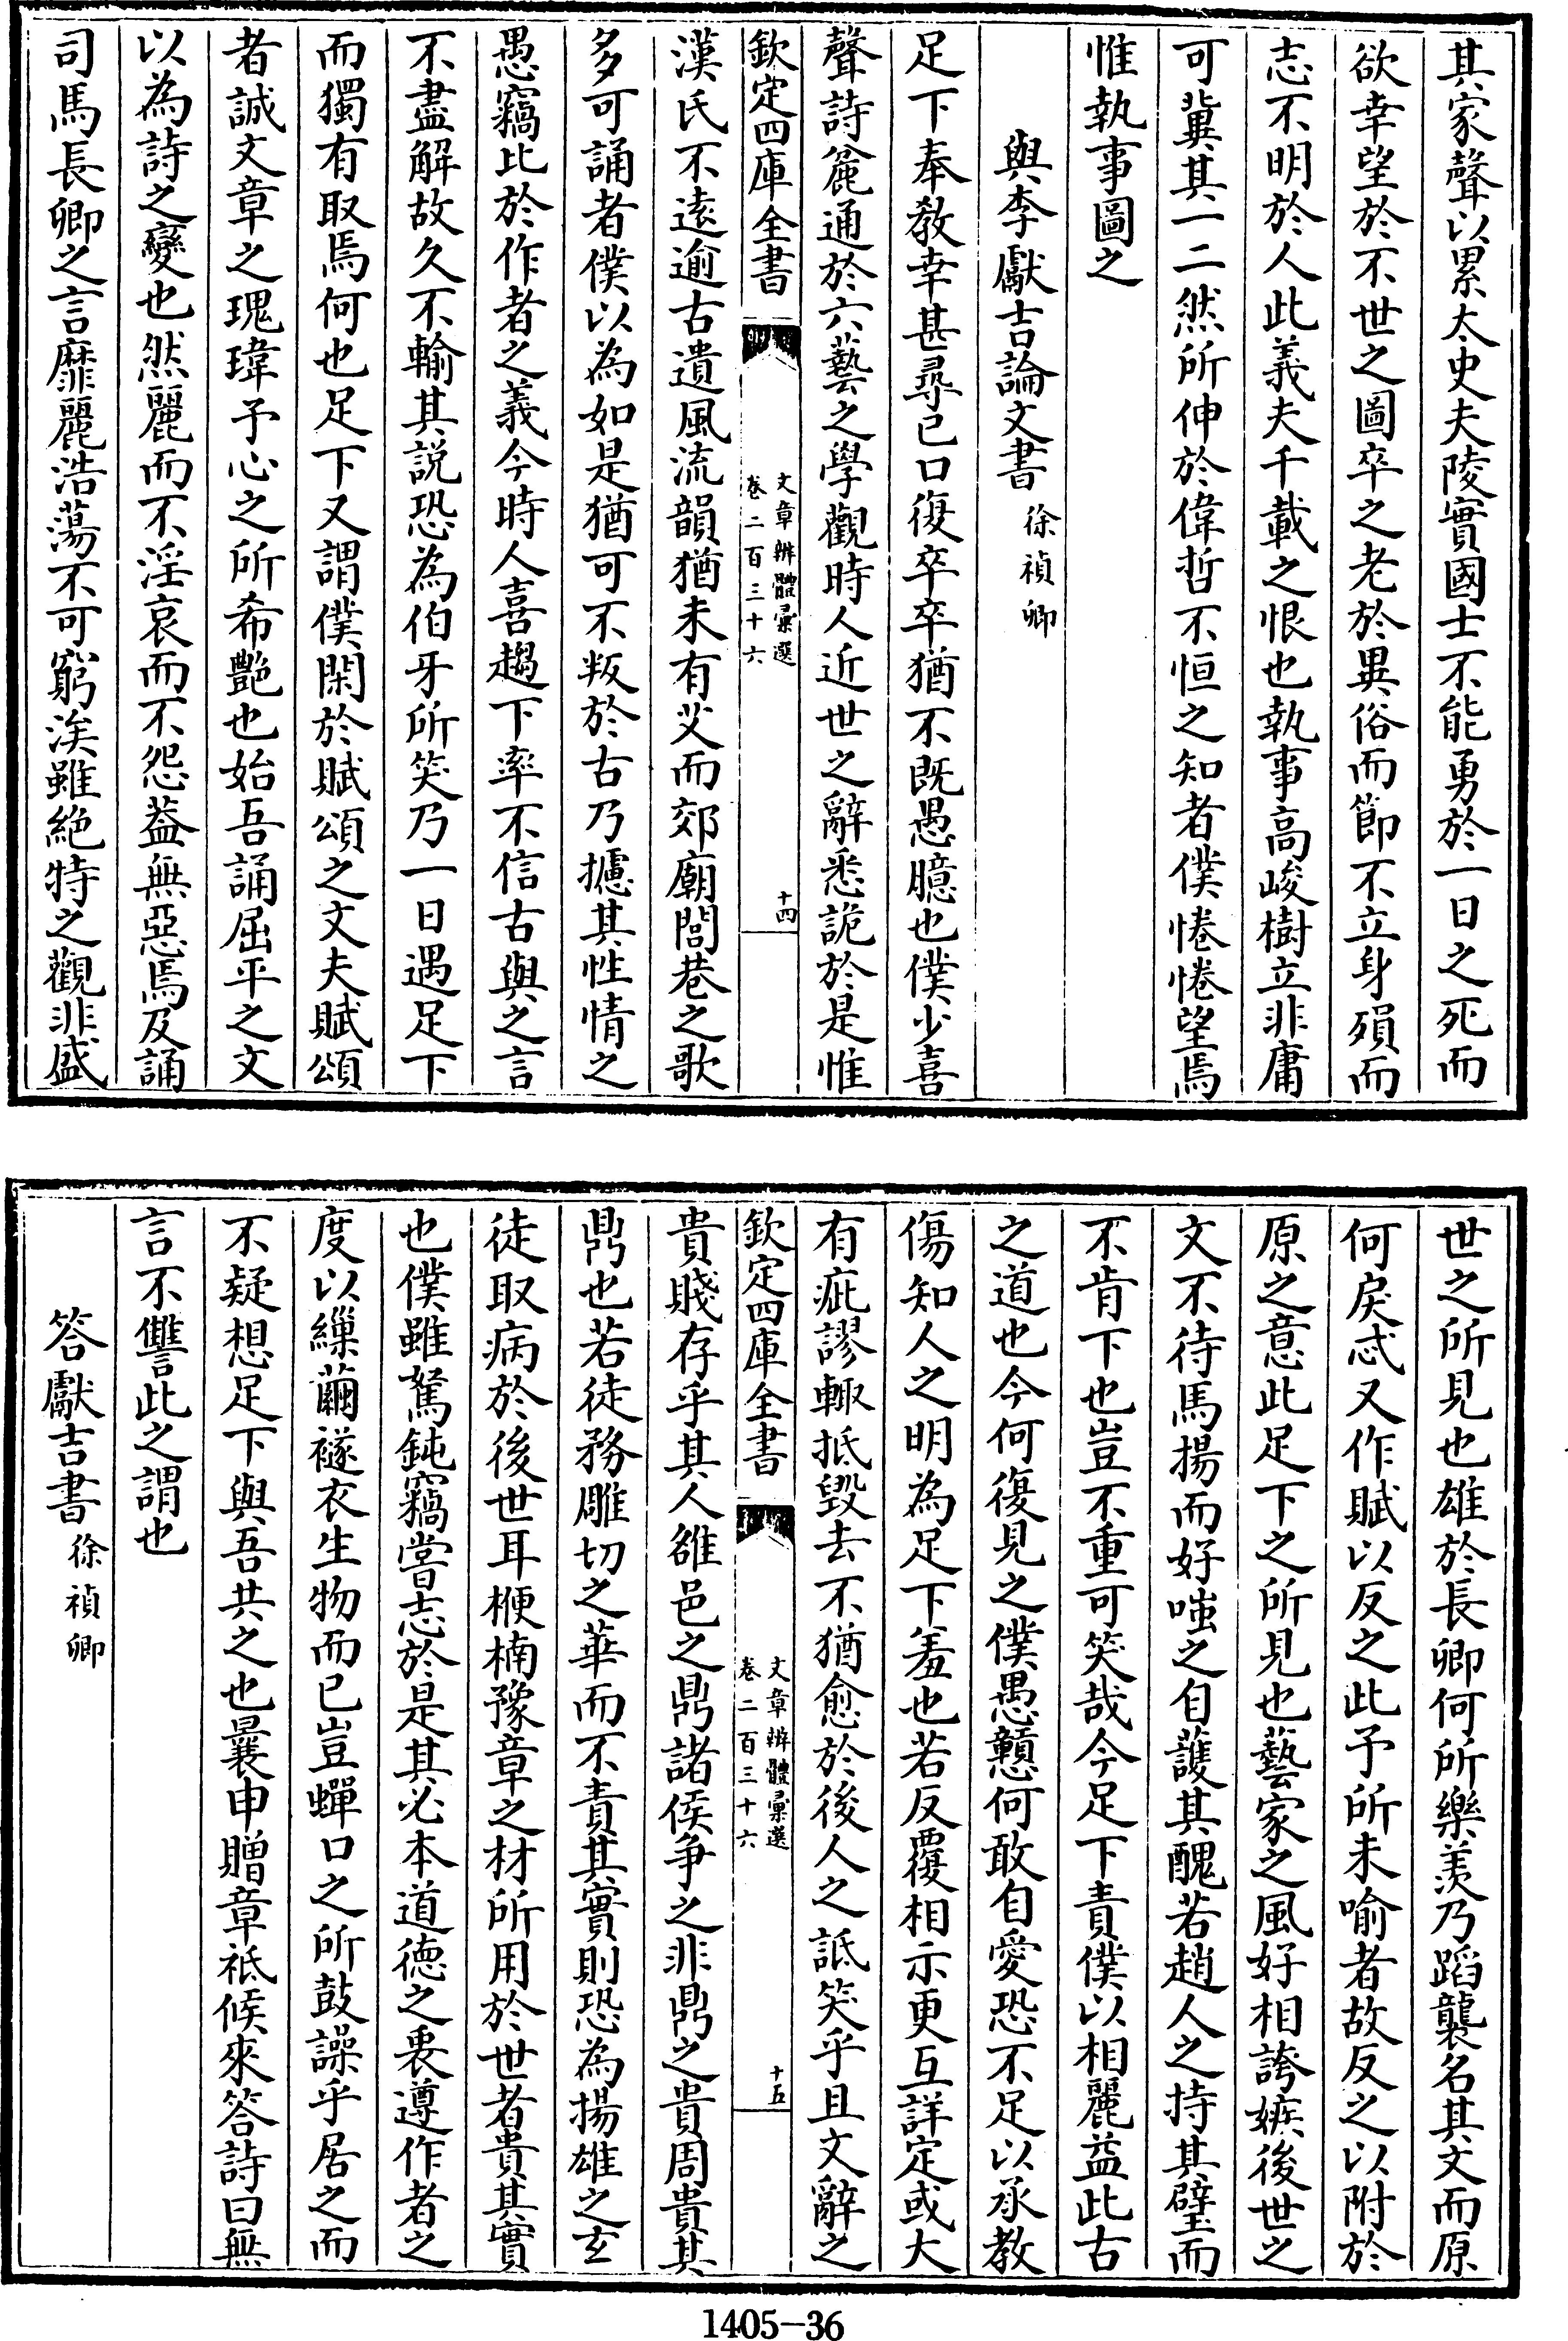 其家聲以累太史夫陵實國士不能勇於一日之死而
欲幸望於不世之圖卒之老於異俗而節不立身殞而
志不明於人此義夫千載之恨也執事高峻樹立非庸
可冀其一二然所伸於偉哲不恒之知者僕惓惓望焉
惟執事圖之
與李獻吉論文書 徐禎卿
足下奉教幸甚尋已口復卒卒猶不既愚臆也僕少喜
聲詩麄通於六藝之學觀時人近世之辭悉詭於是惟
欽定四庫全書
文章辨體彚選
卷二百三十六
十四
漢氏不逺逾古遺風流韻猶未有艾而郊廟閭巷之歌
多可誦者僕以為如是猶可不叛於古乃攄其性情之
愚竊比於作者之義今時人喜趨下率不信古與之言
不盡解故久不輸其説恐為伯牙所笑乃一日遇足下
而獨有取焉何也足下又謂僕閑於賦頌之文夫賦頌
者誠文章之瑰瑋予心之所希艷也始吾誦屈平之文
以為詩之變也然麗而不淫哀而不怨葢無惡焉及誦
司馬長卿之言靡麗浩蕩不可窮涘雖絶特之觀非盛
世之所見也雄於長卿何所樂羡乃蹈襲名其文而原
何戾忒又作賦以反之此予所未喻者故反之以附於
原之意此足下之所見也藝家之風好相誇嫉後世之
文不待馬揚而好嗤之自護其醜若趙人之持其璧而
不肯下也豈不重可笑哉今足下責僕以相麗益此古
之道也今何復見之僕愚戅何敢自愛恐不足以承教
傷知人之明為足下羞也若反覆相示更互詳定或大
有疵謬輙抵毀去不猶愈於後人之詆笑乎且文辭之
欽定四庫全書
文章辨體彚選
卷二百三十六
十五
貴賤存乎其人雒邑之鼎諸侯争之非鼎之貴周貴其
鼎也若徒務雕切之華而不責其實則恐為揚雄之玄
徒取病於後世耳楩楠豫章之材所用於世者貴其實
也僕雖駑鈍竊嘗志於是其必本道德之裏遵作者之
度以繅繭襚衣生物而已豈蟬口之所鼓譟乎居之而
不疑想足下與吾共之也曩申贈章祗候來答詩曰無
言不讐此之謂也
答獻吉書 徐禎卿
1405-36